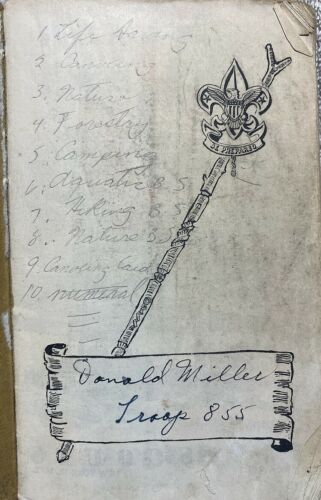 1. Life Saving
2. Canoeing
3. Nature
4. Forestry
5. Camping
6. Aquatic B.S
7. Hiking B.S
8. Nature B.S
9. Canoeing Card
10. numeral
BE PREPARED
Donald Miller
Troop 855